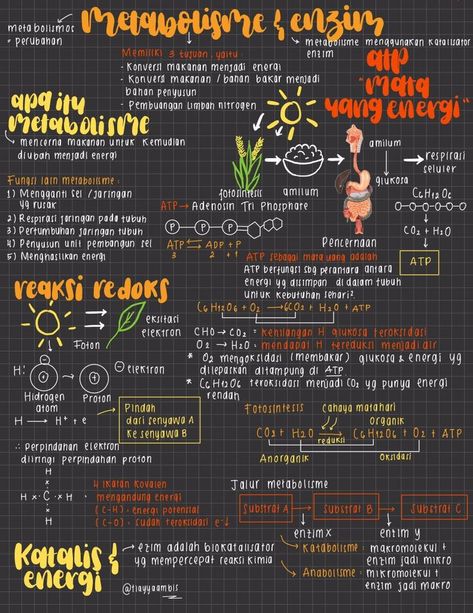 metabolismos
= perubahan
metabolisme & enzim
metabolisme menggunakan katalisator
enzim
Memiliki 3 tujuan, yaitu:
- Konversi makanan menjadi energi
- Konversi makanan / bahan bakar menjadi
bahan penyusun
- Pembuangan limbah nitrogen
atp
"mata
uang energi"
apa itu
metabolisme
mencerna makanan untuk kemudian
diubah menjadi energi
Fungsi lain metabolisme:
1) Mengganti sel / jaringan
yg rusak
2) Respirasi jaringan pada tubuh
3) Pertumbuhan jaringan tubuh
4) Penyusun unit pembangun sel
5) Menghasilkan energi
fotosintesis
amilum
Pencernaan
amilum
glukosa
respirasi
seluler
C6H12O6
CO2 + H2O
ATP
ATP → Adenosin Tri Phosphate
P P P
ATP ⇄ ADP + P
3 2 +1
ATP sebagai mata uang adalah
ATP berfungsi sbg perantara antara
energi yg disimpan di dalam tubuh
untuk kebutuhan sehari²
reaksi redoks
Foton
eksitasi
elektron
C6H12O6 + O2 → 6CO2 + H2O + ATP
CHO → CO2 = kehilangan H glukosa teroksidasi
O2 → H2O = mendapat H tereduksi menjadi air
* O2 mengoksidasi (membakar) glukosa & energi yg
dilepaskan ditampung di ATP
* C6H12O6 teroksidasi menjadi CO2 yg punya energi
rendah
H:
elektron
Hidrogen
atom
Proton
H → H+ + e
Pindah
dari senyawa A
ke senyawa B
∴ perpindahan elektron
diiringi perpindahan proton
Fotosintesis
cahaya matahari
organik
CO2 + H2O → C6H12O6 + O2 + ATP
reduksi
Anorganik
Oksidasi
H
H × C × H
H
4 ikatan kovalen
= mengandung energi
(C-H) = energi potensial
(C-O) = sudah teroksidasi e-↓
Jalur metabolisme
Substrat A
Substrat B
Substrat C
enzim x
enzim y
Katalis &
energi
enzim adalah biokatalisator
yg mempercepat reaksi kimia
Katabolisme: makromolekul +
enzim jadi mikro
Anabolisme: mikromolekul +
enzim jadi makro
@tiayyaambis